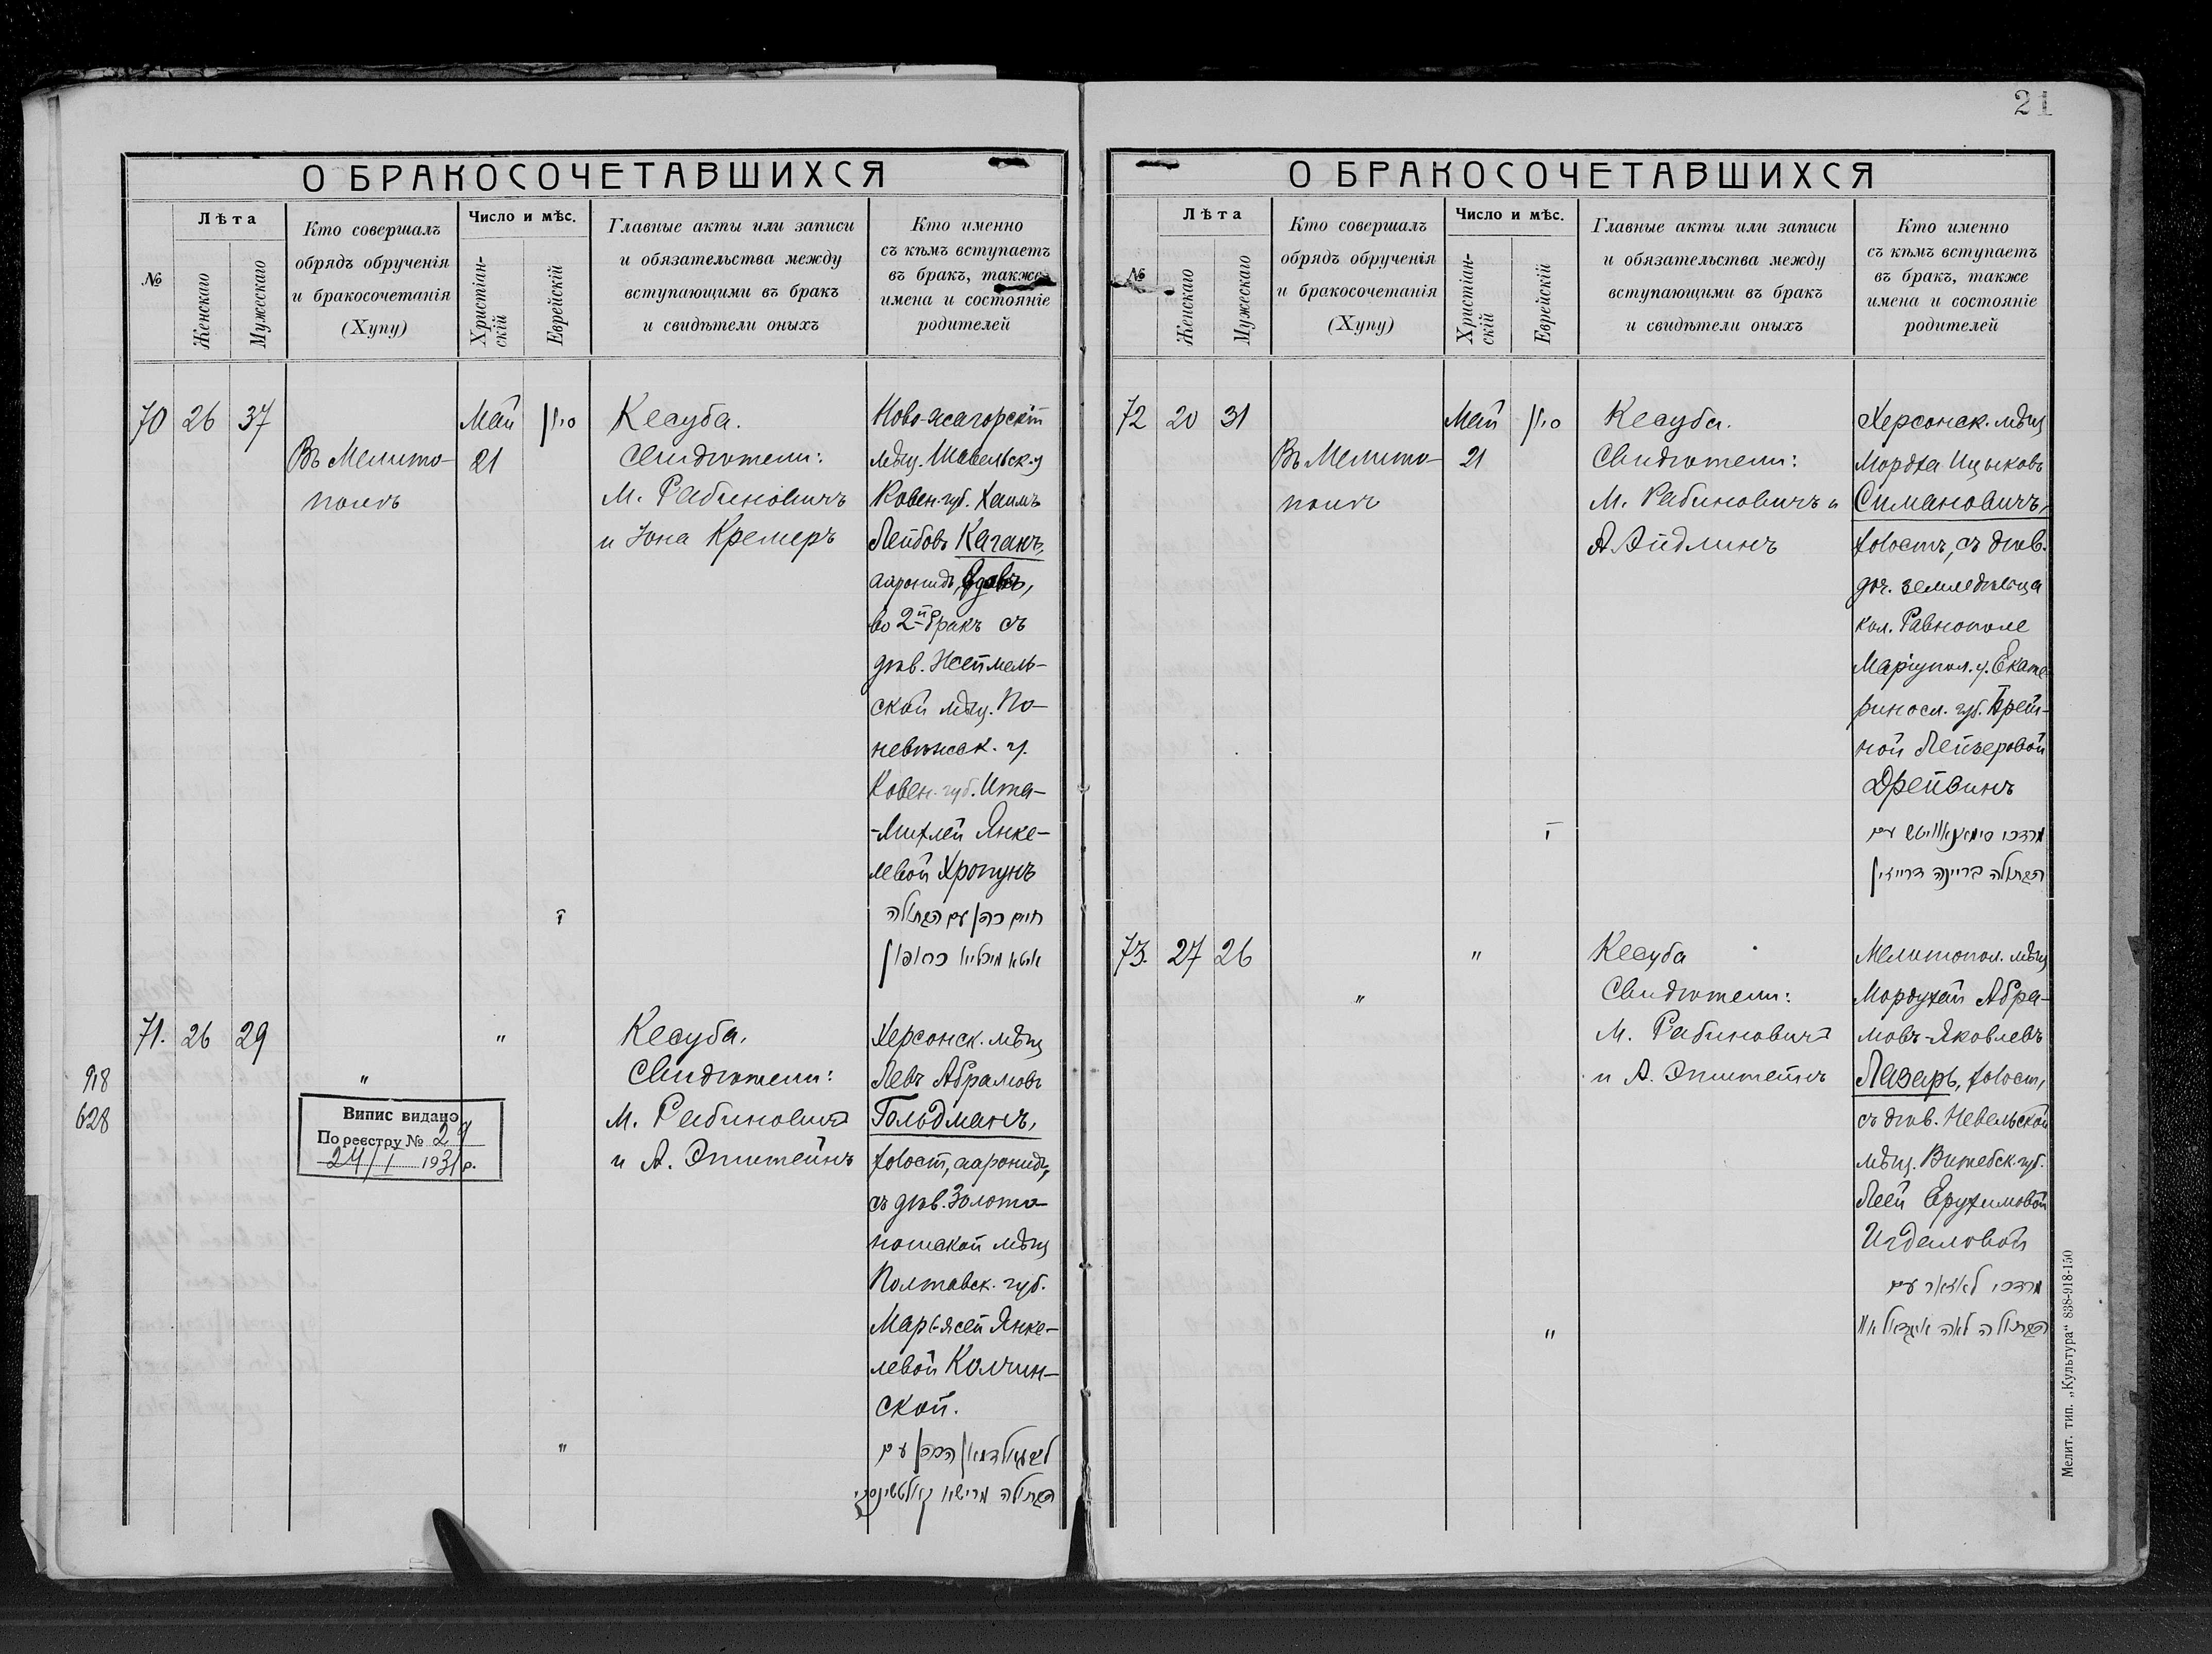 21
О БРАКОСОЧЕТАВШИХСЯ
№
Лѣта
Женскаго
Мужескаго
Кто совершалъ
обрядъ обрученія
и бракосочетанія
(Хупу)
Число и мѣс.
Христіан-
скій
Еврейскій
Главные акты или записи
и обязательства между
вступающими въ бракъ
и свидѣтели оныхъ
Кто именно
съ кѣмъ вступаетъ
въ бракъ, также
имена и состояніе
родителей
70 26 37
Въ Мелито-
полѣ
Май
21
סיון
ז
Кесуба.
Свидѣтели:
М. Рабиновичъ
и Іона Кремеръ
Ново-жагорскій
мѣщ. Шавельск. у
Ковен. губ. Хаимъ
Лейбовъ Каганъ,
ааронидъ, вдовъ,
во 2й бракъ съ
дѣв. Неймель-
ской мѣщ. По-
невѣжск. у.
Ковен. губ. Ита-
-Михлей Янке-
левой Хропунъ
חיים כהן עם הבתולה
איטא מיכליא כראפון
71. 26 29
918
628
"
Випис видано
По реєстру № 29
24/I 1931 р.
"
"
Кесуба.
Свидѣтели:
М. Рабиновичъ
и А. Эпштейнъ
Херсонск. мѣщ
Левъ Абрамовъ
Гольдманъ,
холост, ааронидъ,
съ дѣв. Золото-
ношской мѣщ
Полтавск. губ.
Марьясей Янке-
левой Колчин-
ской.
הכהן עם
הבתולה
О БРАКОСОЧЕТАВШИХСЯ
№
Лѣта
Женскаго
Мужескаго
Кто совершалъ
обрядъ обрученія
и бракосочетанія
(Хупу)
Число и мѣс.
Христіан-
скій
Еврейскій
Главные акты или записи
и обязательства между
вступающими въ бракъ
и свидѣтели оныхъ
Кто именно
съ кѣмъ вступаетъ
въ бракъ, также
имена и состояніе
родителей
72 20 31
Въ Мелито-
полѣ
Май
21
סיון
ז
Кесуба.
Свидѣтели:
М. Рабиновичъ и
А Айдлинъ
Херсонск. мѣщ
Мордха Ицыковъ
Симановичъ,
холостъ, съ дѣв.
доч. земледѣльца
кол. Равнополе
Маріупол. у. Екате-
ринosл. губ. Брей-
ной Лейзеровой
Дрейзинъ
מרדכי סימאנאוויטש עם
הבתולה בריינה דרייזין
73. 27 26
"
"
"
Кесуба
Свидѣтели:
М. Рабиновичъ
и А. Эпштейнъ
Мелитопол. мѣщ
Мордухай Абра-
мовъ-Яковлевъ
Лазарь, холост,
съ дѣв. Невельской
мѣщ. Витебск. губ.
Леей Ерухимовой
Игделовой
מרדכי לאזאר עם
הבתולה לאה
Мелит. тип. „Культура" 838-918-150